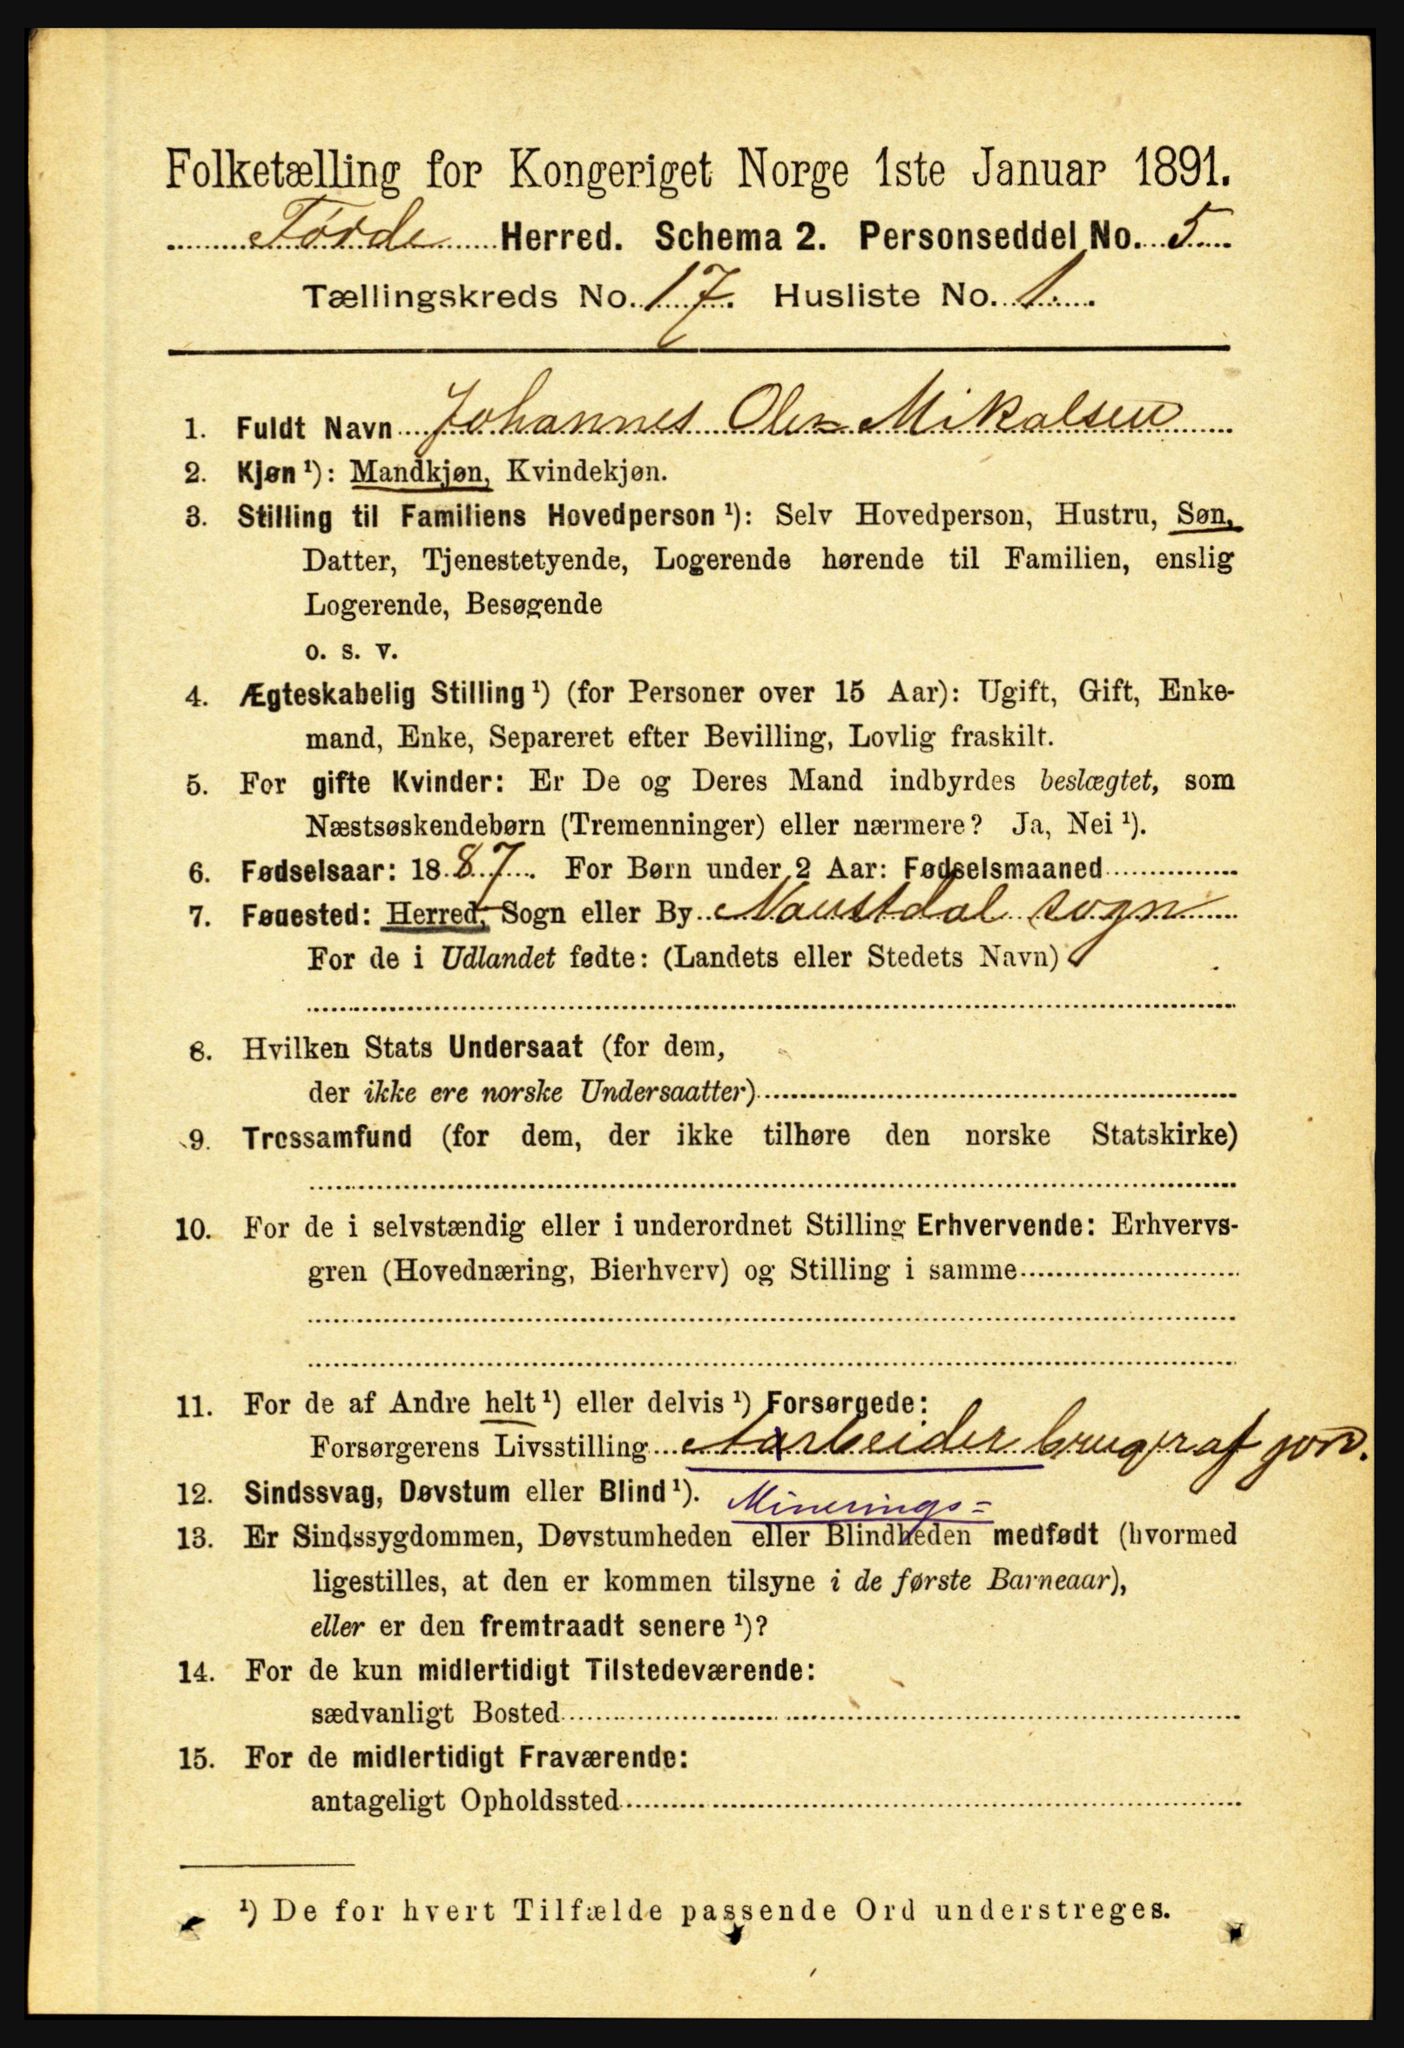 Folketælling for Kongeriget Norge 1ste Januar 1891.
Førde Herred. Schema 2. Personseddel No. 5
Tællingskreds No. 17. Husliste No. 1.
1. Fuldt Navn Johannes Olen Mikalsen
2. Kjøn ¹): Mandkjøn, Kvindekjøn.
3. Stilling til Familiens Hovedperson ¹): Selv Hovedperson, Hustru, Søn,
Datter, Tjenestetyende, Logerende hørende til Familien, enslig
Logerende, Besøgende
o. s. v.
4. Ægteskabelig Stilling ¹) (for Personer over 15 Aar): Ugift, Gift, Enke-
mand, Enke, Separeret efter Bevilling, Lovlig fraskilt.
5. For gifte Kvinder: Er De og Deres Mand indbyrdes beslægtet, som
Næstsøskendebørn (Tremenninger) eller nærmere? Ja, Nei ¹).
6. Fødselsaar: 1887. For Børn under 2 Aar: Fødselsmaaned
7. Føuested: Herred, Sogn eller By Naustdal sogn
For de i Udlandet fødte: (Landets eller Stedets Navn)
8. Hvilken Stats Undersaat (for dem,
der ikke ere norske Undersaatter)
9. Trossamfund (for dem, der ikke tilhøre den norske Statskirke)
10. For de i selvstændig eller i underordnet Stilling Erhvervende: Erhvervs-
gren (Hovednæring, Bierhverv) og Stilling i samme
11. For de af Andre helt ¹) eller delvis ¹) Forsørgede:
Forsørgerens Livsstilling Arbeider bruger af jord.
12. Sindssvag, Døvstum eller Blind ¹). Minerings=
13. Er Sindssygdommen, Døvstumheden eller Blindheden medfødt (hvormed
ligestilles, at den er kommen tilsyne i de første Barneaar),
eller er den fremtraadt senere ¹)?
14. For de kun midlertidigt Tilstedeværende:
sædvanligt Bosted
15. For de midlertidigt Fraværende:
antageligt Opholdssted
¹) De for hvert Tilfælde passende Ord understreges.